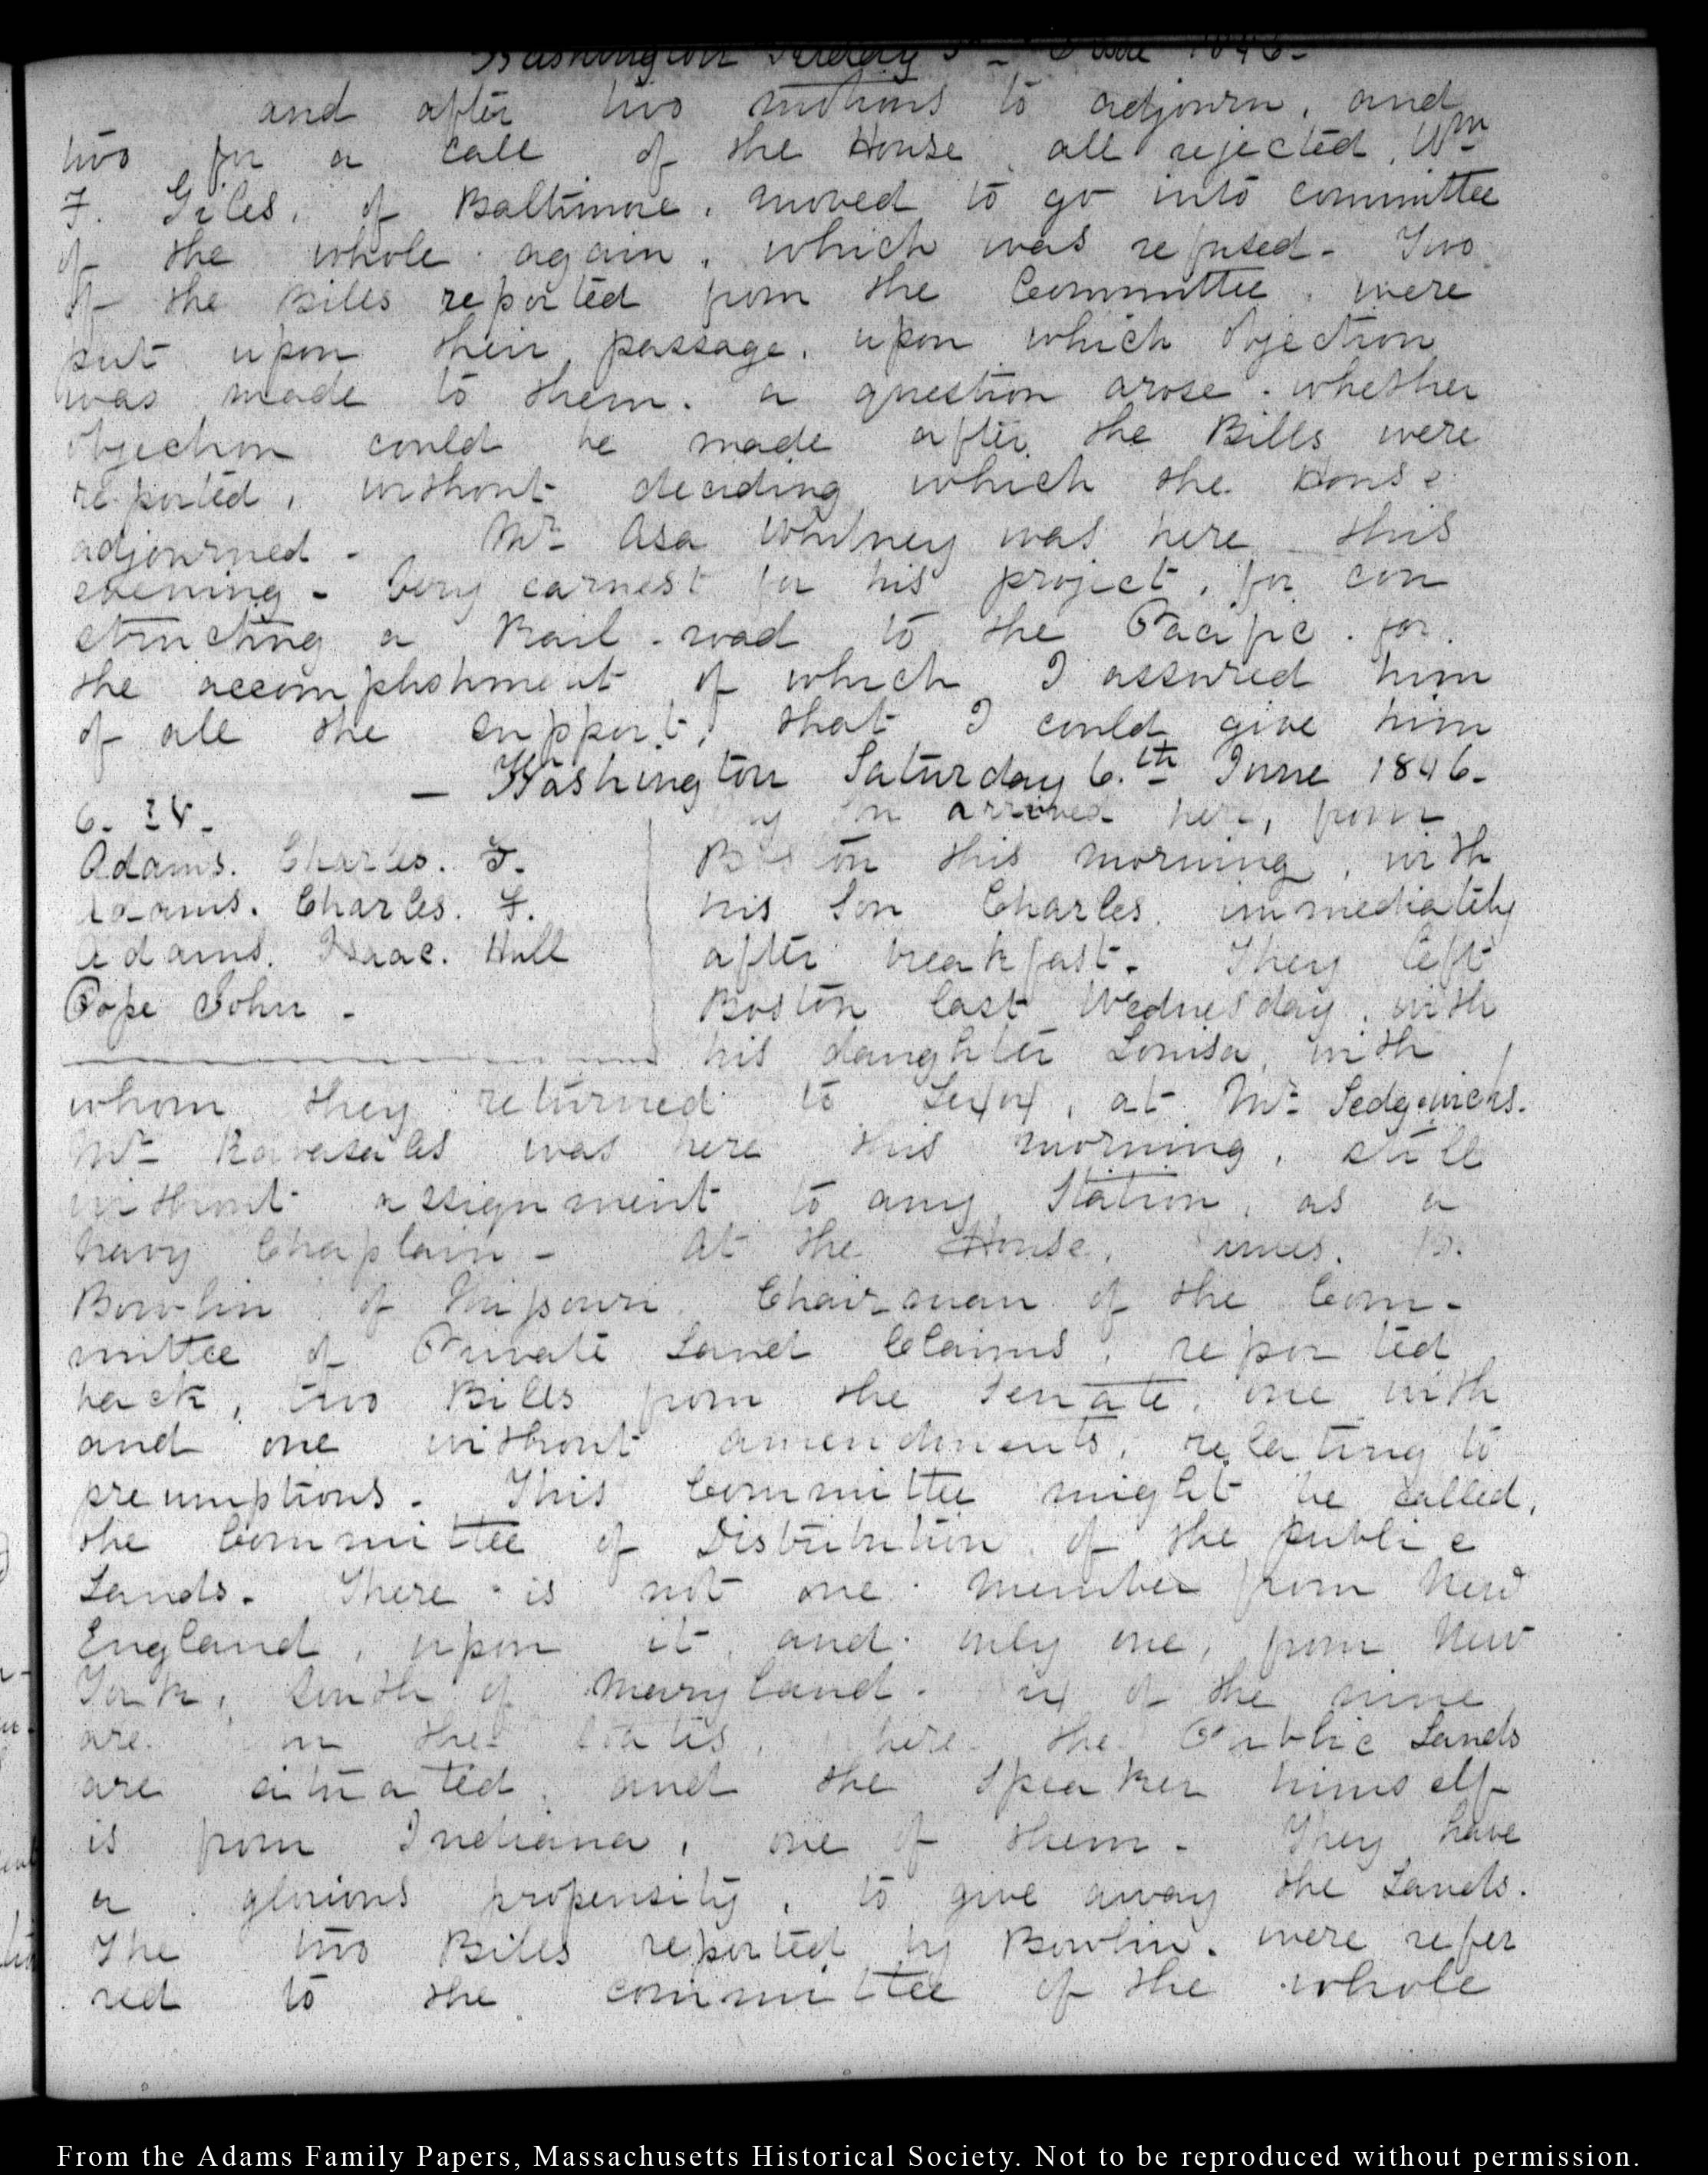 Washington Friday 5th June 1846-
and after two motions to adjourn, and
two for a call of the House all rejected, Wm
F. Giles, of Baltimore, moved to go into committee
of the whole again, which was refused- Two
of the Bills reported from the Committee, were
put upon their passage, upon which objection
was made to them. a question arose, whether
objection could be made after the Bills were
reported, without deciding which the House
adjourned- Mr Asa Whitney was here this
evening- Very earnest for his project, for con
structing a Rail-road to the Pacific. for
the accomplishment of which I assured him
of all the support, that I could give him
- Washington Saturday 6.th June 1846-
6. IV.
Adams. Charles. F.
Adams. Charles. F.
Adams. Isaac. Hull
Pope John-
arrived here, from
Boston this morning, with
his Son Charles, immediately
after breakfast- They left
Boston last Wednesday, with
his daughter Louisa, with
whom they returned to at Mr Sedgwicks.
Mr was here this morning, still
without assignment to any Station, as a
Navy Chaplain- At the House, James. B.
Bowlin of Missouri Chairman of the Com-
mittee of Private Land Claims, reported
back, two Bills from the Senate, one with
and one without amendments, relating to
preumptions- This Committee might be called,
the Committee of Distribution of the public
Lands- There is not one member from New
England, upon it, and only one, from New
York, South of Maryland. of the nine
are the States, where the Public Lands
are situated, and the Speaker himself
is from Indiana, one of them- They have
a glorious propensity, to give away the Lands.
The two Bills reported by Bowlin. were refer
red to the committee of the whole
From the Adams Family Papers, Massachusetts Historical Society. Not to be reproduced without permission.